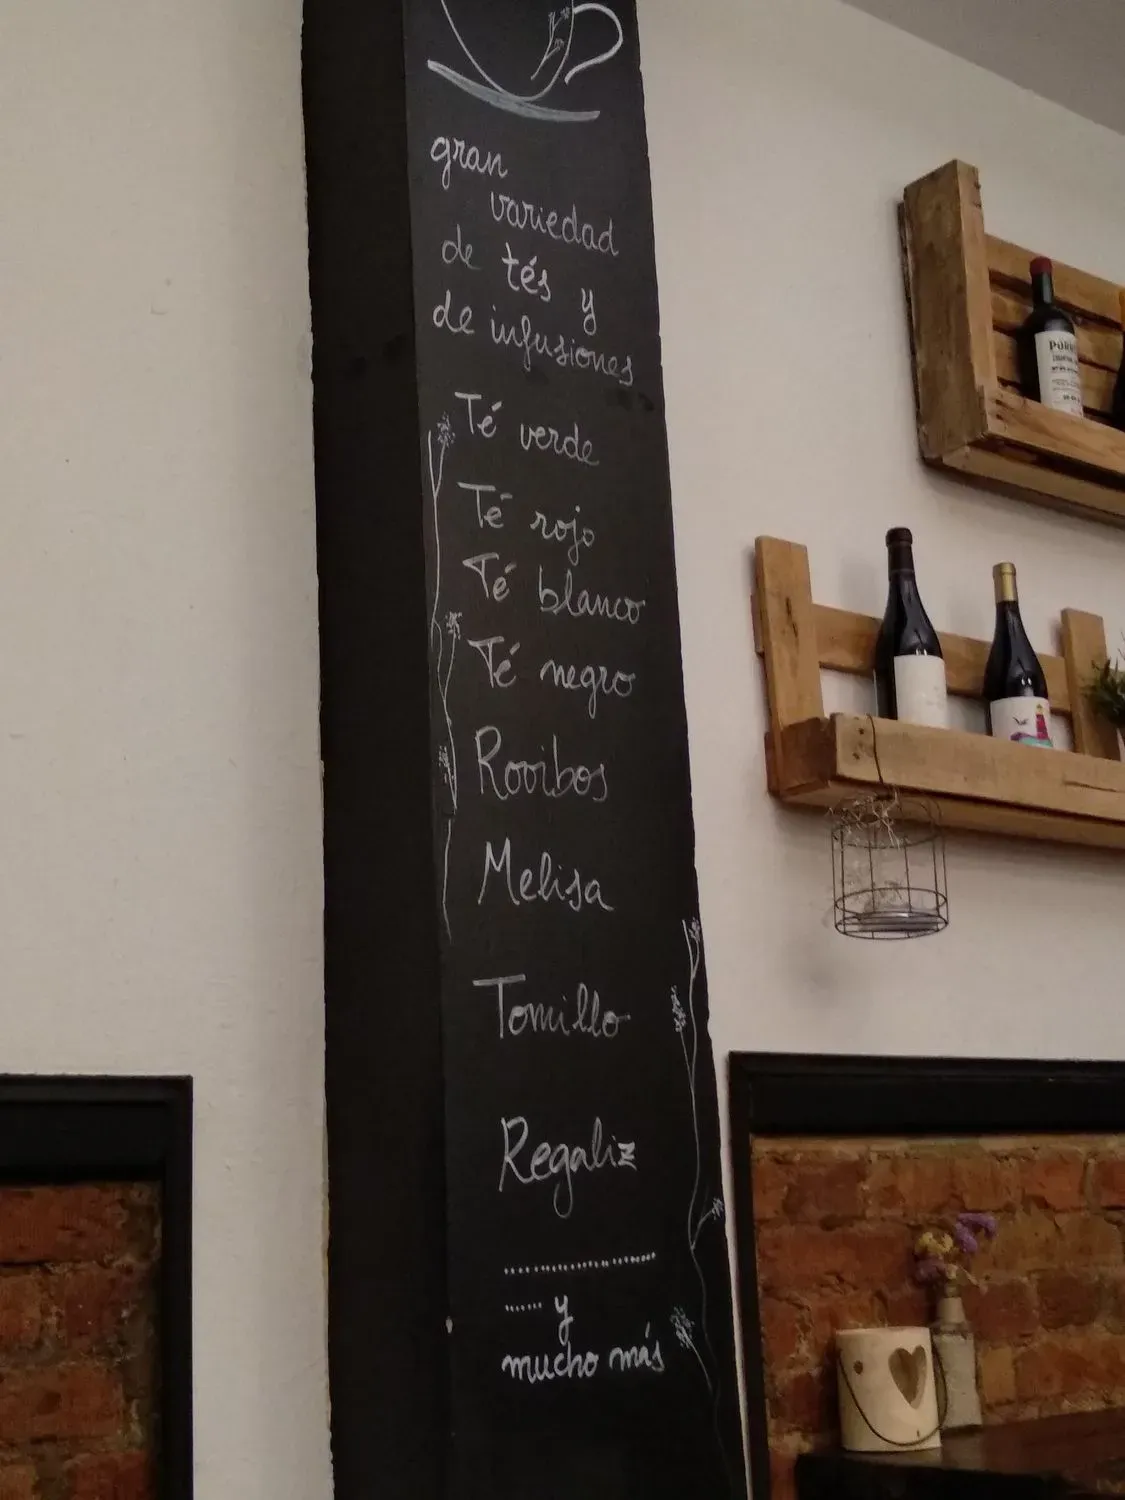 gran
variedad
de tés y
de infusiones
Té verde
Té rojo
Té blanco
Té negro
Rooibos
Melisa
Tomillo
Regaliz
....................
...... y
mucho más